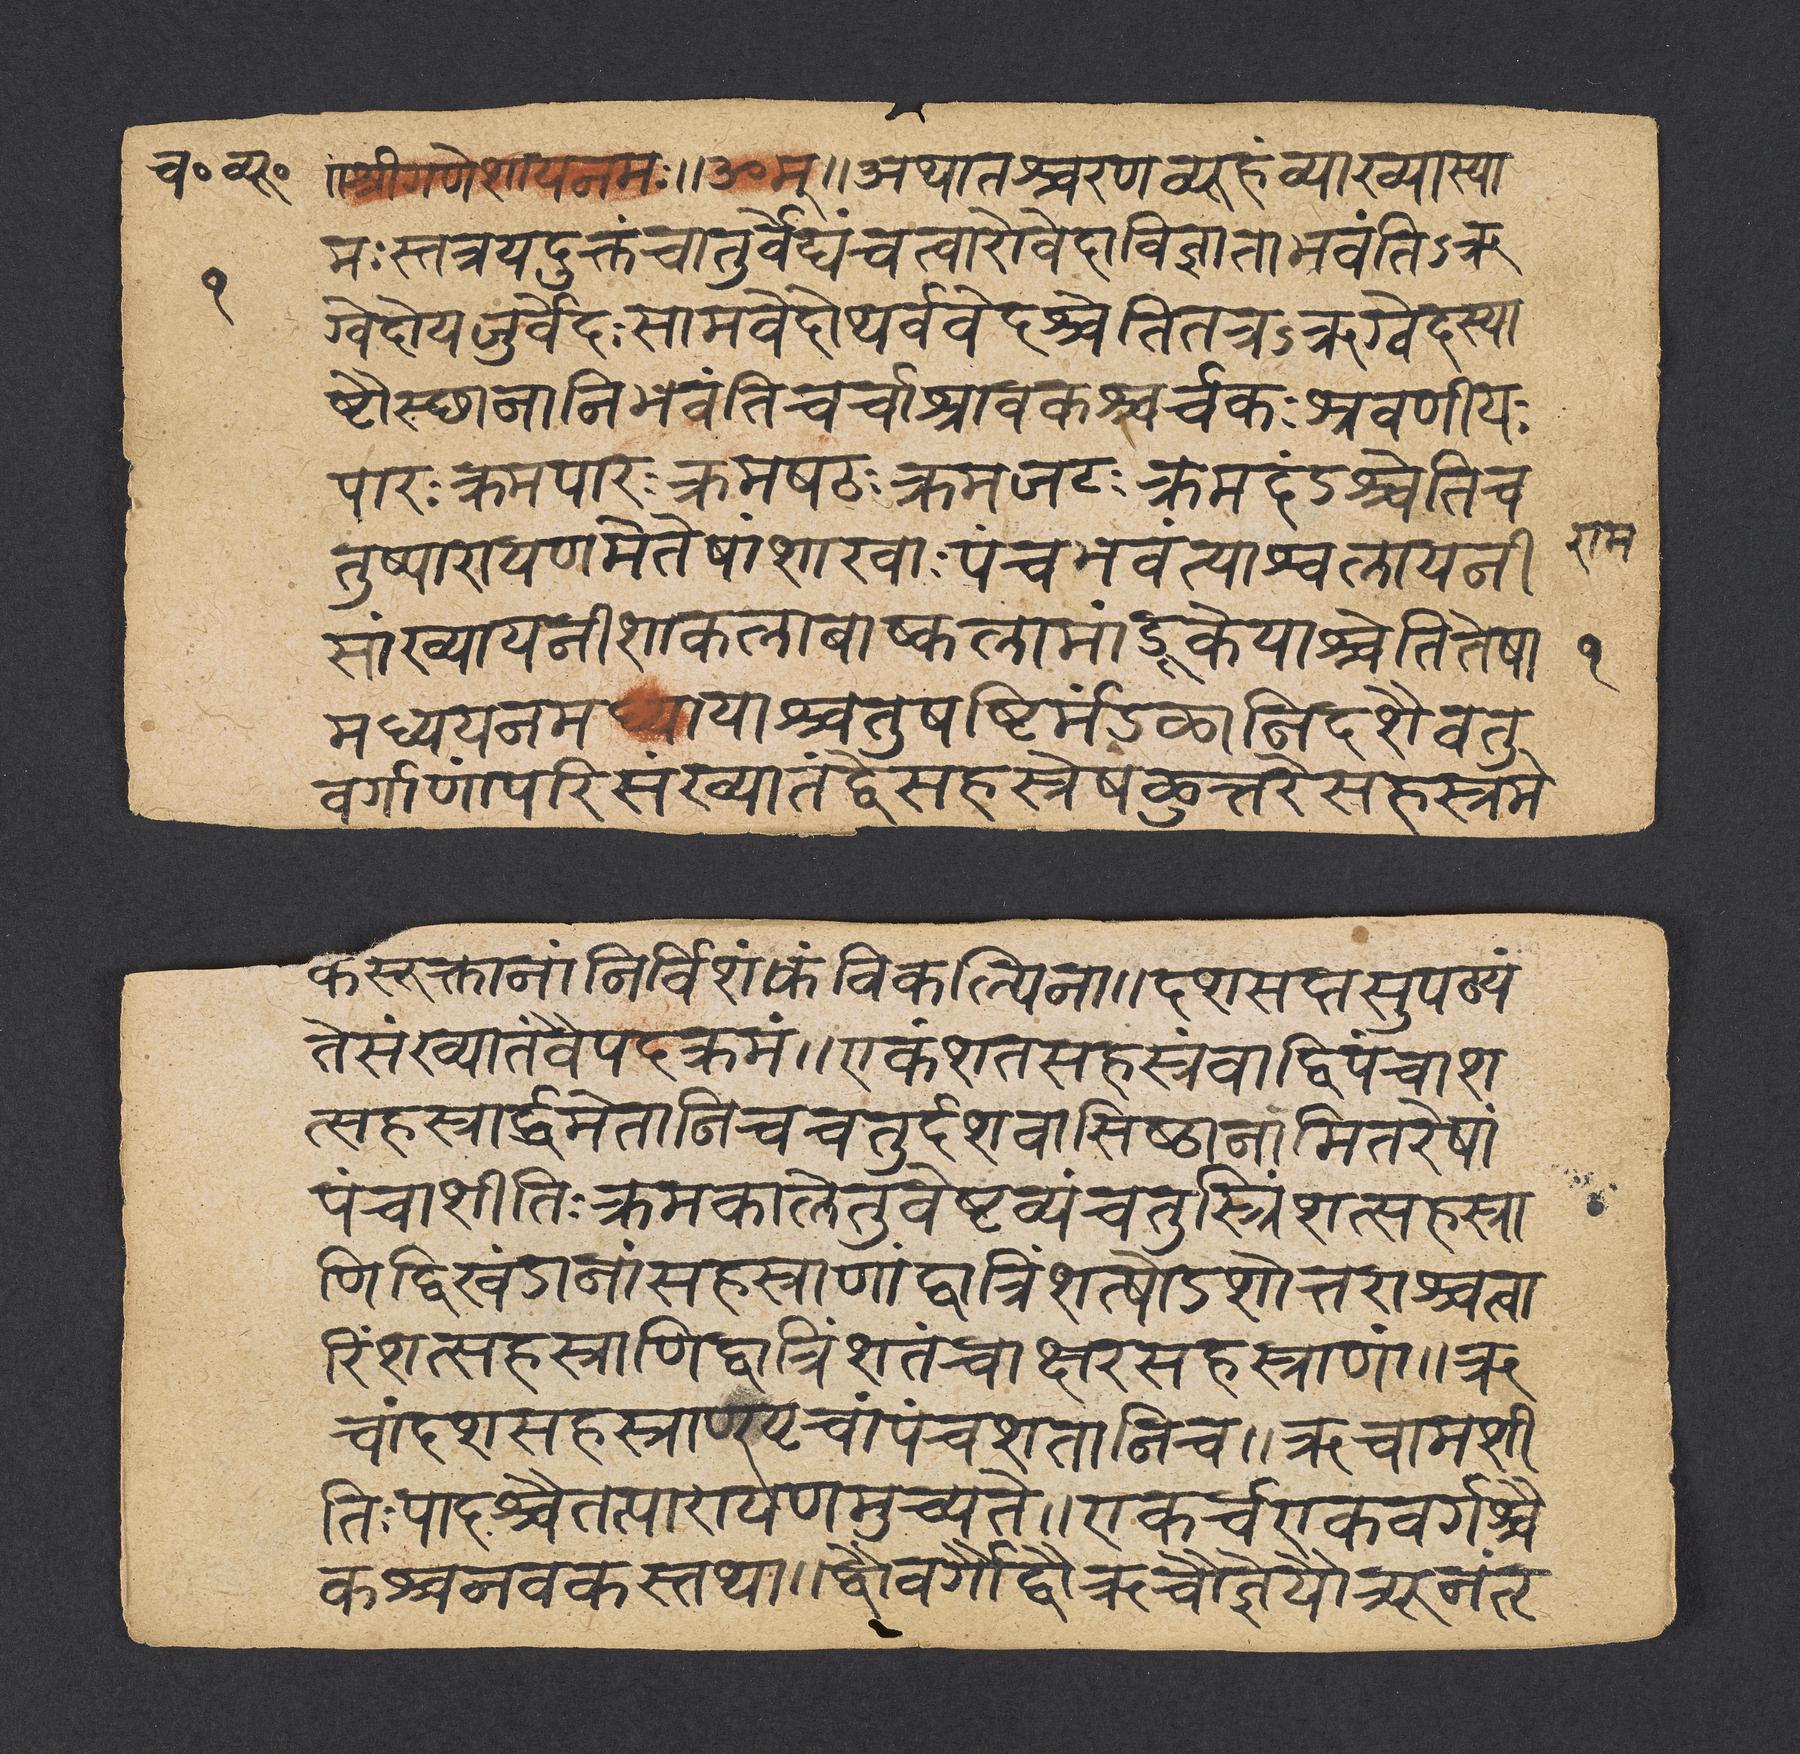 च॰ व्यू॰
१
॥श्रीगणेशायनमः॥ॐम्॥अथातश्चरणव्यूहंव्याख्यास्या
मःस्तत्रयदुक्तंचातुर्वैद्यंचत्वारोवेदाविज्ञाताभवंतिऽऋ
ग्वेदोयजुर्वेदःसामवेदोथर्ववेदश्चेतितत्रऽऋग्वेदस्या
ष्टौस्छानानिभवंतिचर्चाश्रावकश्चर्चकःश्रवणीयः
पारःक्रमपारःक्रमषठःक्रमजटःक्रमदंडश्चेतिच
तुष्पारायणमेतेषांशाखाःपंचभवंत्याश्वलायनी
सांख्यायनीशाकलाबाष्कलामांडूकेयाश्चेतितेषा
मध्ययनमध्यायाश्चतुषष्टिर्मंडळानिदशैवतु
वर्गाणांपरिसंख्यातंद्वेसहस्त्रेषळुत्तरेसहस्त्रमे
राम
१
कसूक्तानांनिर्विशंकंविकल्पिना॥दशसप्तसुपठ्यं
तेसंख्यातंवैपदक्रमं॥एकंशतसहस्त्रंवाद्विपंचाश
त्सहस्त्रार्द्धमेतानिचचतुर्दशवासिष्ठानामितरेषां
पंचाशीतिःक्रमकालेतुवेष्टव्यंचतुस्त्रिंशत्सहस्त्रा
णिद्विखंडानांसहस्त्राणांद्वात्रिंशत्षोडशोत्तराश्चत्वा
रिंशत्सहस्त्राणिद्वात्रिंशतंचाक्षरसहस्त्राणां॥ऋ
चांदशसहस्त्राणिऋचांपंचशतानिच॥ऋचामशी
तिःपादश्चैतत्पारायणमुच्यते॥एकर्चएकवर्गश्चै
कश्चनवकस्तथा॥द्वौवर्गौद्वौऋचौज्ञेयौत्र्यूनंतृ